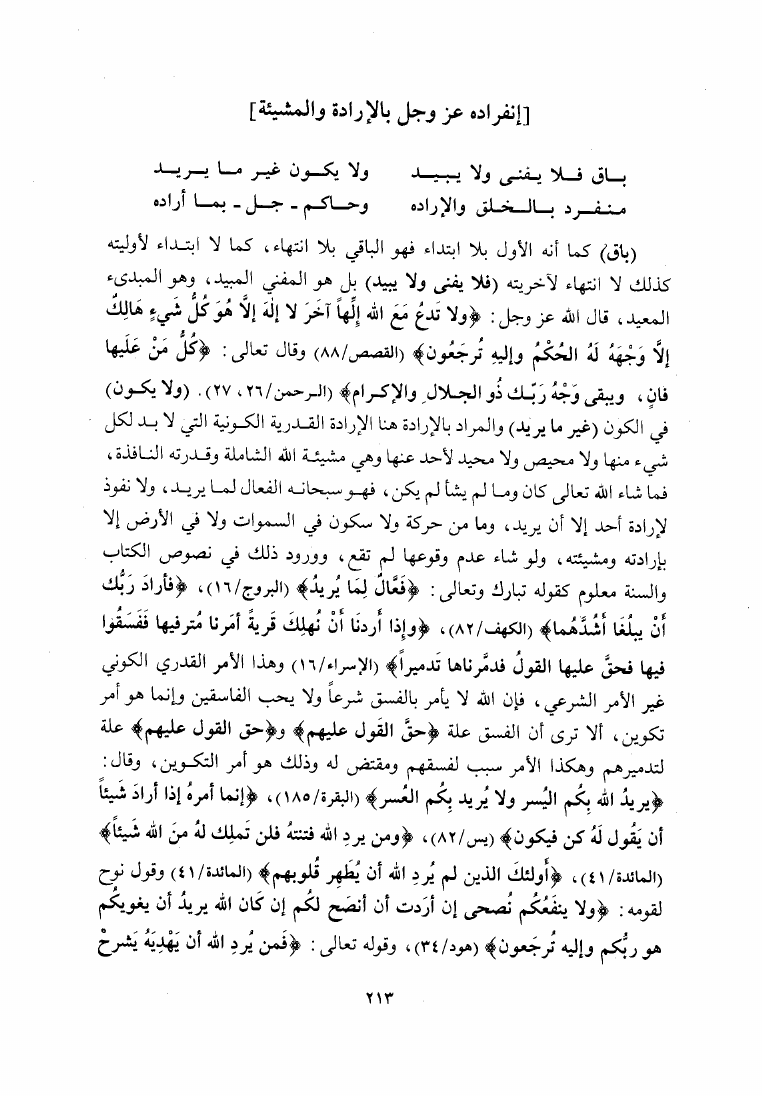 [إنفراده عز وجل بالإرادة والمشيئة]
بـاق فـلا يـفنـى ولا يـبـيـد ولا يكـون غيـر مـا يـريـد
منـفـرد بـالـخـلق والإراده وحـاكـم - جـل - بمـا أراده
(باق) كما أنه الأول بلا ابتداء فهو الباقي بلا انتهاء، كما لا ابتداء لأوليته
كذلك لا انتهاء لآخريته (فلا يفنى ولا يبيد) بل هو المفني المبيد، وهو المبدىء
المعيد، قال الله عز وجل: ﴿ولا تَدعُ مَعَ الله إلٰهاً آخَرَ لا إلٰهَ إلَّا هُوَ كُلُّ شَيءٍ هَالِكٌ
إلَّا وَجْهَهُ لَهُ الحُكْمُ وإليهِ تُرجَعُون﴾ (القصص/٨٨) وقال تعالى: ﴿كُلُّ مَنْ عَلَيها
فانٍ، ويبقى وَجْهُ رَبّـك ذُو الجـلال والإكـرام﴾ (الـرحمن/٢٦، ٢٧). (ولا يكـون)
في الكون (غير ما يريد) والمراد بالإرادة هنا الإرادة القـدرية الكـونية التي لا بـد لكل
شيء منها ولا محيص ولا محيد لأحد عنها وهي مشيئة الله الشاملة وقـدرته النـافذة،
فما شاء الله تعالى كان وما لم يشأ لم يكن، فهـو سبحانـه الفعال لمـا يريـد، ولا نفوذ
لإرادة أحد إلا أن يريد، وما من حركة ولا سكون في السموات ولا في الأرض إلا
بإرادته ومشيئته، ولو شاء عدم وقوعها لم تقع، وورود ذلك في نصوص الكتاب
والسنة معلوم كقوله تبارك وتعالى: ﴿فَعَّالٌ لِمَا يُريدُ﴾ (البروج/١٦)، ﴿فأرادَ رَبُّك
أنْ يبلُغَا أشُدَّهُما﴾ (الكهف/٨٢)، ﴿وإذا أردنَا أنْ نُهلِكَ قَريةً أمَرنا مُترفيها فَفَسَقُوا
فيها فحقَّ عليها القولُ فدمَّرناها تَدميراً﴾ (الإسراء/١٦) وهذا الأمر القدري الكوني
غير الأمر الشرعي، فإن الله لا يأمر بالفسق شرعاً ولا يحب الفاسقين وإنما هو أمر
تكوين، ألا ترى أن الفسق علة ﴿حقَّ القَول عليهم﴾ و﴿حق القول عليهم﴾ علة
لتدميرهم وهكذا الأمر سبب لفسقهم ومقتض له وذلك هو أمر التكـوين، وقال:
﴿يريدُ الله بِكُم اليُسر ولا يُريد بِكُم العُسر﴾ (البقرة/١٨٥)، ﴿إنما أمرهُ إذا أرادَ شَيئاً
أن يَقُول لَهُ كن فيكون﴾ (يس/٨٢)، ﴿ومن يردِ الله فتنتهُ فلن تَملِك لهُ منَ الله شَيئاً﴾
(المائدة/٤١)، ﴿أولئكَ الذين لم يُردِ الله أن يُطَهِر قُلوبهم﴾ (المائدة/٤١) وقول نوح
لقومه: ﴿ولا ينفَعُكُم نُصحى إن أرَدت أن أنصَح لكُم إن كَان الله يريدُ أن يغويكُم
هو ربُّكم وإليه تُرجَعون﴾ (هود/٣٤)، وقوله تعالى: ﴿فَمن يُردِ الله أن يَهْدِيَهُ يَشرحْ
٢١٣